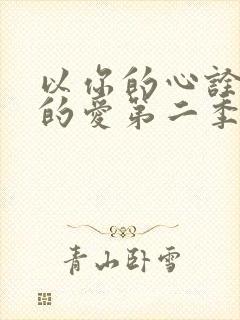 以你的心诠
的爱第二季
青山卧雪